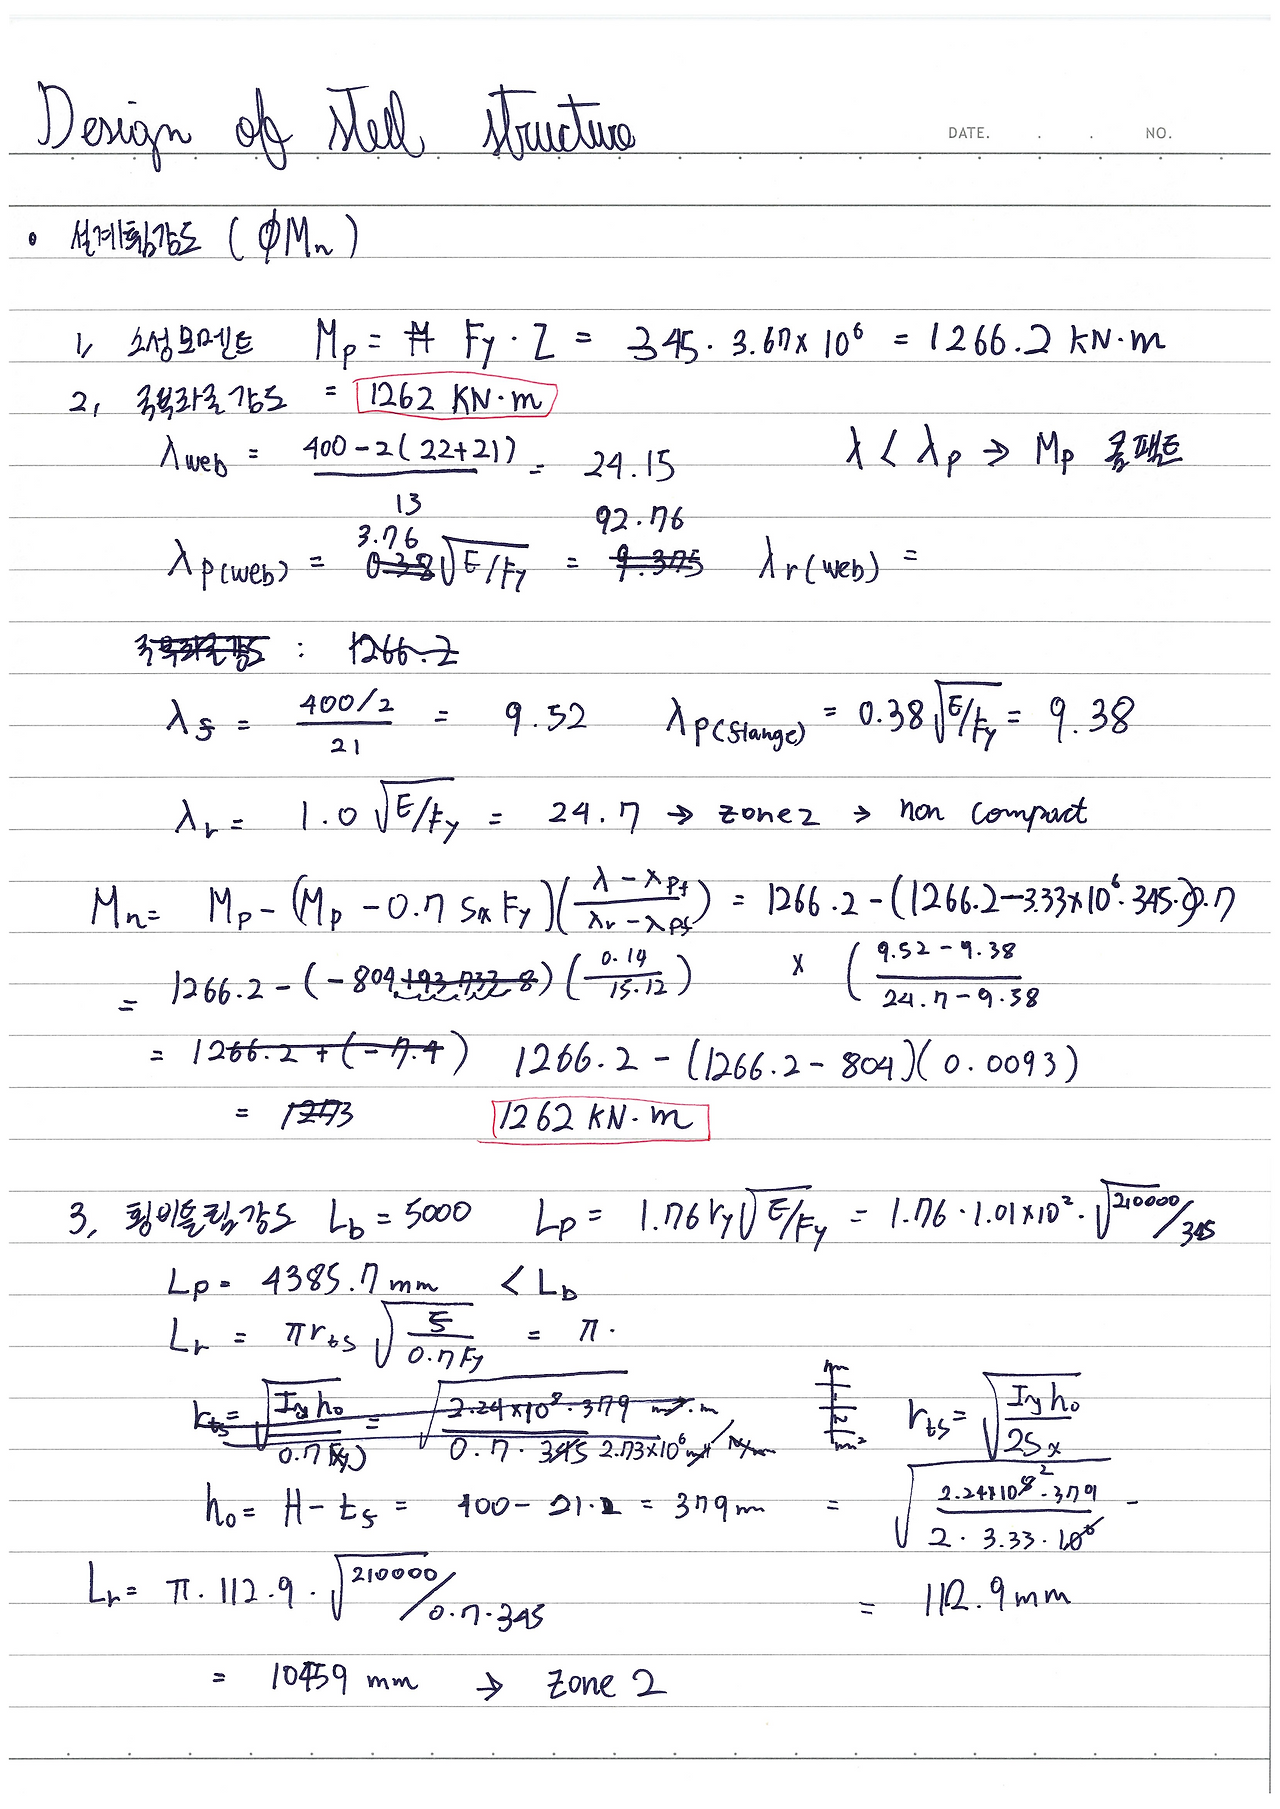 Design of stell structure
DATE. . . NO.
• 설계휨강도 ( ϕMn )
1, 소성모멘트 Mp = Fy · Z = 345 · 3.67 x 10⁶ = 1266.2 KN·m
2, 국부좌굴강도 = 1262 KN·m
λweb = 400 - 2(22+21) / 13 = 24.15 λ < λp → Mp 콤팩트
λp(web) = 3.76 0.38 √E/Fy = 92.76 9.375 λr(web) =
국부좌굴강도 : 1266.2
λf = 400/2 / 21 = 9.52 λp(flange) = 0.38 √E/Fy = 9.38
λr = 1.0 √E/Fy = 24.7 → zone 2 → non compact
Mn = Mp - (Mp - 0.7 Sx Fy)(λ - λpf / λr - λpf) = 1266.2 - (1266.2 - 3.33x10⁶ · 345 · 0.7)
= 1266.2 - (-804 +93.732.8)(0.14 / 15.12) x (9.52 - 9.38 / 24.7 - 9.38
= 1266.2 + (-7.4) 1266.2 - (1266.2 - 804)(0.0093)
= 1273 1262 KN·m
3, 횡비틀림강도 Lb = 5000 Lp = 1.76 ry √E/Fy = 1.76 · 1.01x10² · √210000/345
Lp = 4385.7 mm < Lb
Lr = π rts √E / 0.7Fy = π ·
rts = √Iy h₀ / 0.7 Fy = √2.24x10⁸ · 379 / 0.7 · 345 2.73x10⁶ rts = √Iy h₀ / 2Sx
h₀ = H - tf = 400 - 21 = 379 m = √2.24x10² · 379 / 2 · 3.33 · 10⁶
Lr = π · 112.9 · √210000 / 0.7 · 345 = 112.9 mm
= 10459 mm → zone 2